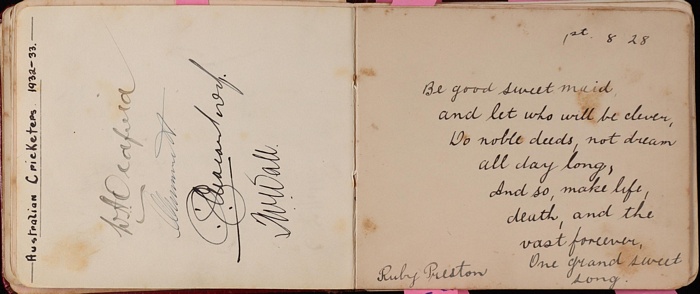 Australian Cricketers 1932-33.
W A Oldfield
T.W. Wall.
1st. 8 28
Be good sweet maid,
and let who will be clever,
Do noble deeds, not dream
all day long,
And so, make life,
death, and the
vast forever,
One grand sweet
song.
Ruby Preston